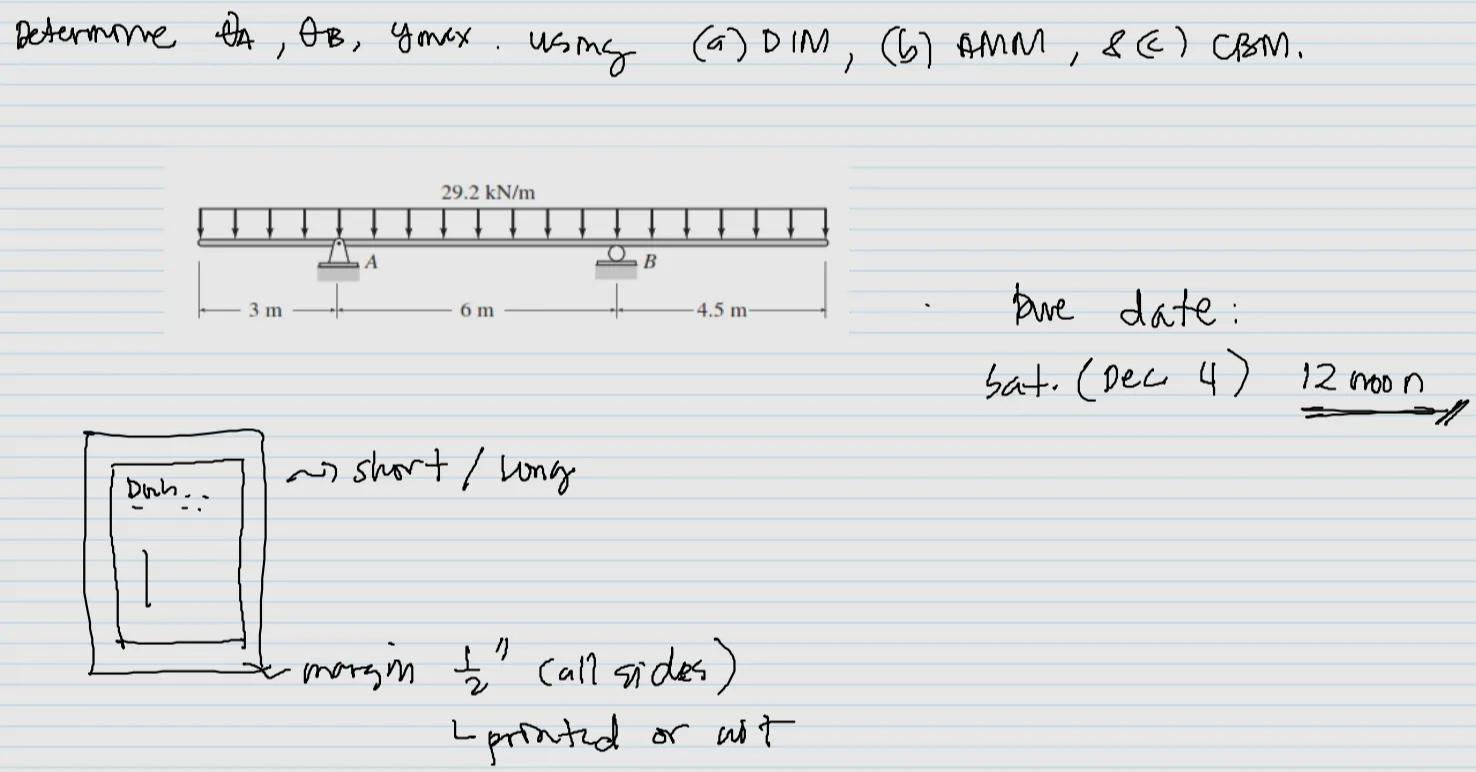 Determine θA, θB, ymax. using (a) DIM, (b) AMM, & (c) CBM.
29.2 kN/m
A
B
3 m
6 m
4.5 m
Due date:
Sat. (Dec 4) 12 noon
short / long
margin 1/2" (all sides)
printed or not